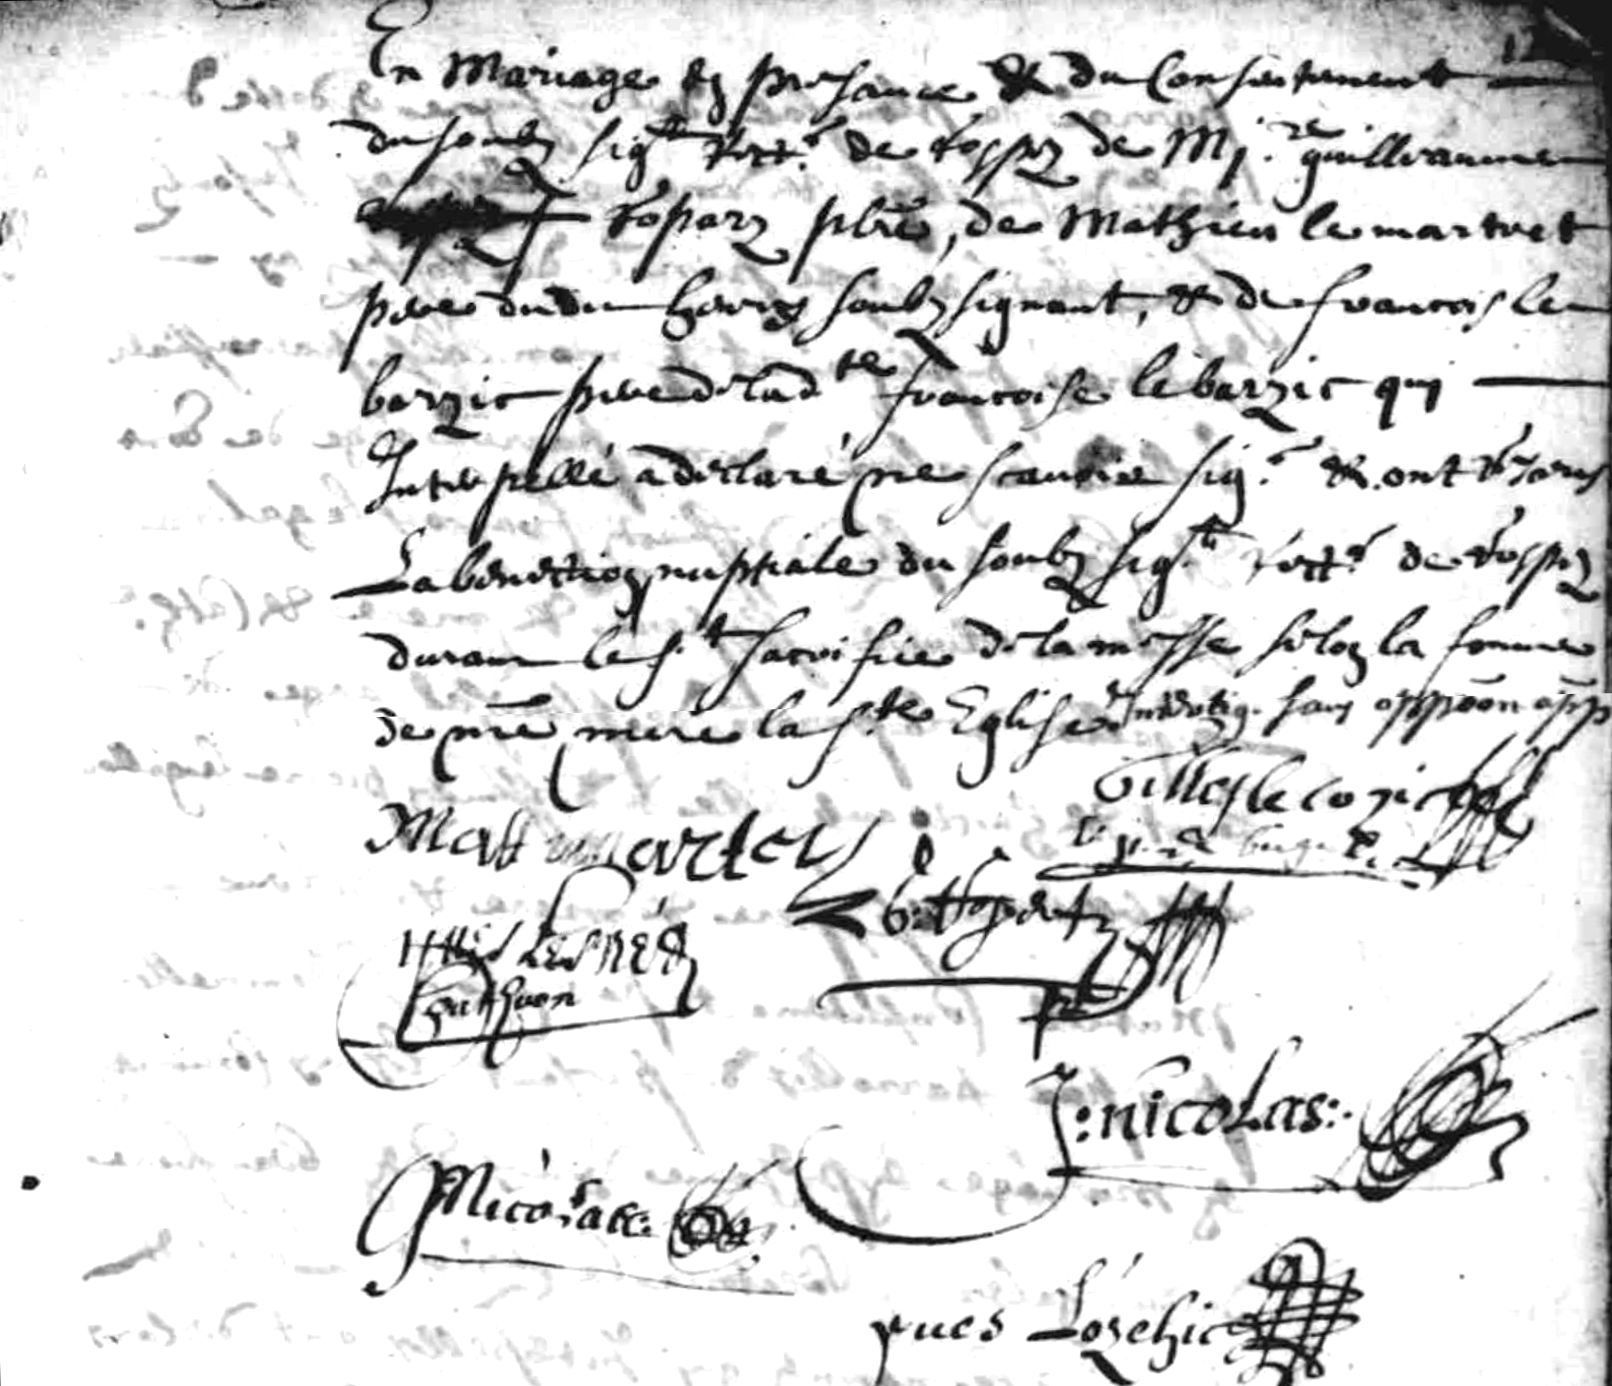 En Mariage en presance & du Consentement
du soubz sigt Rectr de Rospez de Mire guilleaume
Rosparz pbre, de Mathieu le martret
pere dudit henry soubzsignant, & de francois le
barzic pere de lade francoise le barzic qui
Interpellé a declaré ne scavoir sigr & ont
La benediction nuptiale du soubz sigt rectr de Rospez
durant le st sacrifice de la messe selon la forme
de nre mere la ste Eglise sans opposon
Gilles le cozic
Mat martret
G: Rospartz
Yves Lesné
J: nicolas:
Nicolas:
yues Lozehic